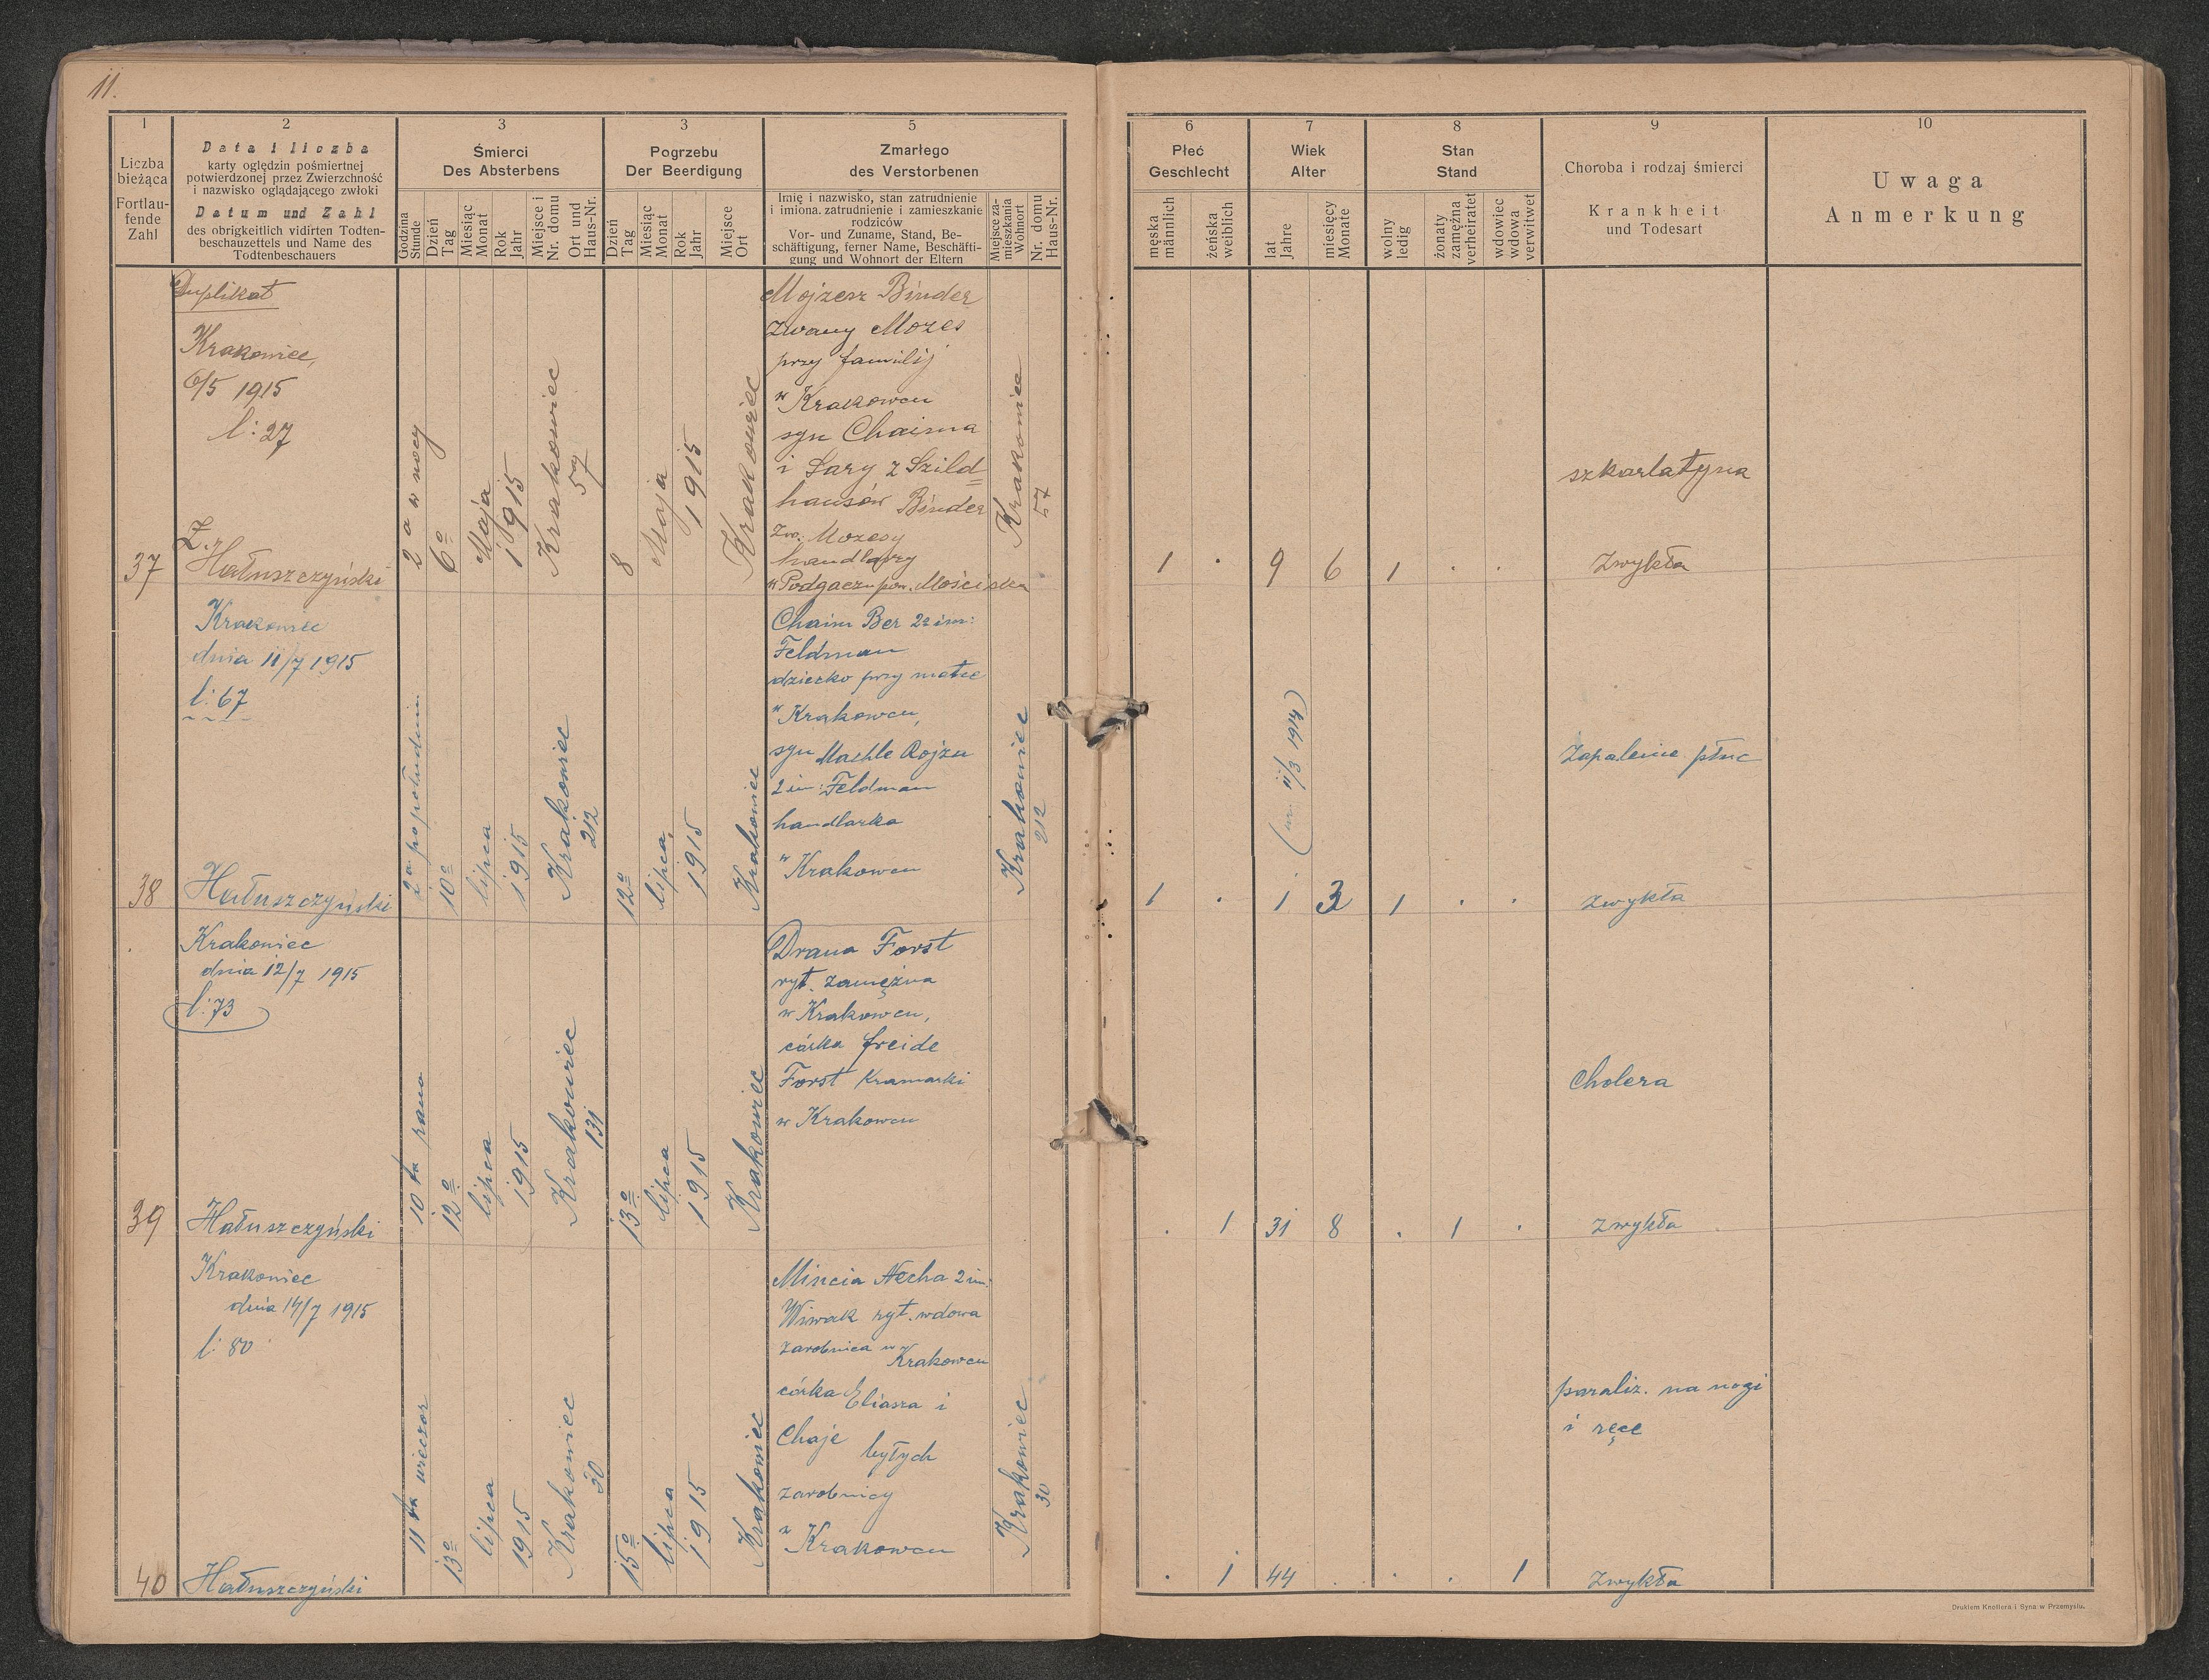 11.
1
Liczba
bieżąca
Fortlau-
fende
Zahl
2
Data i liczba
karty oględzin pośmiertnej
potwierdzonej przez Zwierzchność
i nazwisko oglądającego zwłoki
Datum und Zahl
des obrigkeitlich vidirten Todten-
beschauzettels und Name des
Todtenbeschauers
3
Śmierci
Des Absterbens
Godzina
Stunde
Dzień
Tag
Miesiąc
Monat
Rok
Jahr
Miejsce i
Nr. domu
Ort und
Haus-Nr.
3
Pogrzebu
Der Beerdigung
Dzień
Tag
Miesiąc
Monat
Rok
Jahr
Miejsce
Ort
5
Zmarłego
des Verstorbenen
Imię i nazwisko, stan zatrudnienie
i imiona, zatrudnienie i zamieszkanie
rodziców
Vor- und Zuname, Stand, Be-
schäftigung, ferner Name, Beschäfti-
gung und Wohnort der Eltern
Miejsce za-
mieszkania
Wohnort
Nr. domu
Haus-Nr.
6
Płeć
Geschlecht
męska
männlich
żeńska
weiblich
7
Wiek
Alter
lat
Jahre
miesięcy
Monate
8
Stan
Stand
wolny
ledig
żonaty
zamężna
verheiratet
wdowiec
wdowa
verwitwet
9
Choroba i rodzaj śmierci
Krankheit
und Todesart
10
Uwaga
Anmerkung
37
Duplikat
Krakowiec,
6/5 1915
l: 27
Hałuszczyński
2 a w nocy
6o
Maja
1915
Krakowiec
57
8
Maja
1915
Krakowiec
Mojżesz Binder
zwany Mozes
przy familij
w Krakowcu
syn Chaima
i Sary z Szild=
hausów Binder
zw. Mozesy
handlarzy
w Podgaczu pow. Mościska
Krakowiec
57
1 . 9 6 1 . .
szkarlatyna
Zwykła
38
Krakowiec
dnia 11/7 1915
l: 67
Hałuszczyński
2a po południu
10o
lipca
1915
Krakowiec
212
12o
lipca
1915
Krakowiec
Chaim Ber 2a im:
Feldman
dziecko przy matce
w Krakowcu,
syn Machle Rojza
2 im: Feldman
handlarka
w Krakowcu
Krakowiec
212
1 . 1 3 1 . .
(ur. 11/3 1914)
Zapalenie płuc
Zwykła
39
Krakowiec
dnia 12/7 1915
l: 73
Hałuszczyński
10 ta rano
12o
lipca
1915
Krakowiec
131
13o
lipca
1915
Krakowiec
Drana Forst
ryt. zamężna
w Krakowcu,
córka freide
Forst Kramarki
w Krakowcu
. 1 31 8 . 1 .
Cholera
Zwykła
40
Krakowiec
dnia 14/7 1915
l: 80
Hałuszczyński
11 ta wieczor
13o
lipca
1915
Krakowiec
30
15o
lipca
1915
Krakowiec
Mincia Necha 2 im:
Wiwak ryt. wdowa
zarobnica w Krakowcu
córka Eliasza i
Chaje byłych
zarobnicy
z Krakowcu
Krakowiec
30
. 1 44 . . . 1
paraliż. na nogi
i ręce
Zwykła
Drukiem Knollera i Syna w Przemyślu.